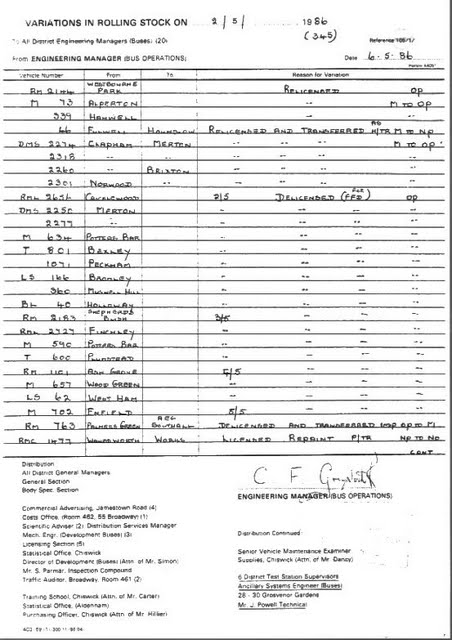 VARIATIONS IN ROLLING STOCK ON 2/5/ 1986
(345)
To All District Engineering Managers (Buses) (20)
From ENGINEERING MANAGER (BUS OPERATIONS) Date 6.5.86
Vehicle Number From To Reason for Variation
RM 2146 WESTBOURNE PARK RELICENSED OP
M 73 ALPERTON -- M TO OP
339 HANWELL -- --
66 FULWELL HOUNSLOW RELICENSED AND TRANSFERRED AS H/TR M TO NP
DMS 2274 CLAPHAM MERTON -- -- -- M TO OP
2318 -- -- -- -- -- --
2260 -- BRIXTON -- -- -- --
2301 NORWOOD -- -- -- -- --
RML 2656 CRICKLEWOOD 2/5 DELICENSED FOR (FFD) OP
DMS 2250 MERTON -- -- -- --
2277 -- -- -- -- --
M 634 POTTERS BAR -- -- -- --
T 801 BEXLEY -- -- -- --
1071 PECKHAM -- -- -- --
LS 166 BROMLEY -- -- -- --
360 MUSWELL HILL -- -- -- --
BL 40 HOLLOWAY -- -- -- --
RM 2183 SHEPHERDS BUSH 3/5 -- -- --
RML 2727 FINCHLEY -- -- -- --
M 590 POTTERS BAR -- -- -- --
T 600 PLUMSTEAD -- -- -- --
RM 1101 ASH GROVE 5/5 -- -- --
M 657 WOOD GREEN -- -- -- --
LS 62 WEST HAM -- -- -- --
M 702 ENFIELD 5/5 -- -- --
RM 763 PALMERS GREEN AEC SOUTHALL DELICENSED AND TRANSFERRED OP TO M
RMC 1477 WANDSWORTH WORKS LICENSED REPAINT P/TR NP TO NO
CONT
Distribution
All District General Managers
General Section
Body Spec. Section
C F
ENGINEERING MANAGER (BUS OPERATIONS)
Commercial Advertising, Jamestown Road (4)
Costs Office, (Room 462, 55 Broadway) (1)
Scientific Adviser (2) Distribution Services Manager
Mech. Engr. (Development Buses) (3)
Licensing Section (5)
Statistical Office, Chiswick
Director of Development (Buses) (Attn. of Mr. Simon)
Mr. S. Parmar, Inspection Compound
Traffic Auditor, Broadway, Room 461 (2)
Training School, Chiswick (Attn. of Mr. Carter)
Statistical Office, (Aldenham)
Purchasing Officer, Chiswick (Attn. of Mr. Hillier)
Distribution Continued
Senior Vehicle Maintenance Examiner
Supplies, Chiswick (Attn. of Mr. Dancy)
6 District Test Station Supervisors
Ancillary Systems Engineer (Buses)
28 - 30 Grosvenor Gardens
Mr. J. Powell Technical